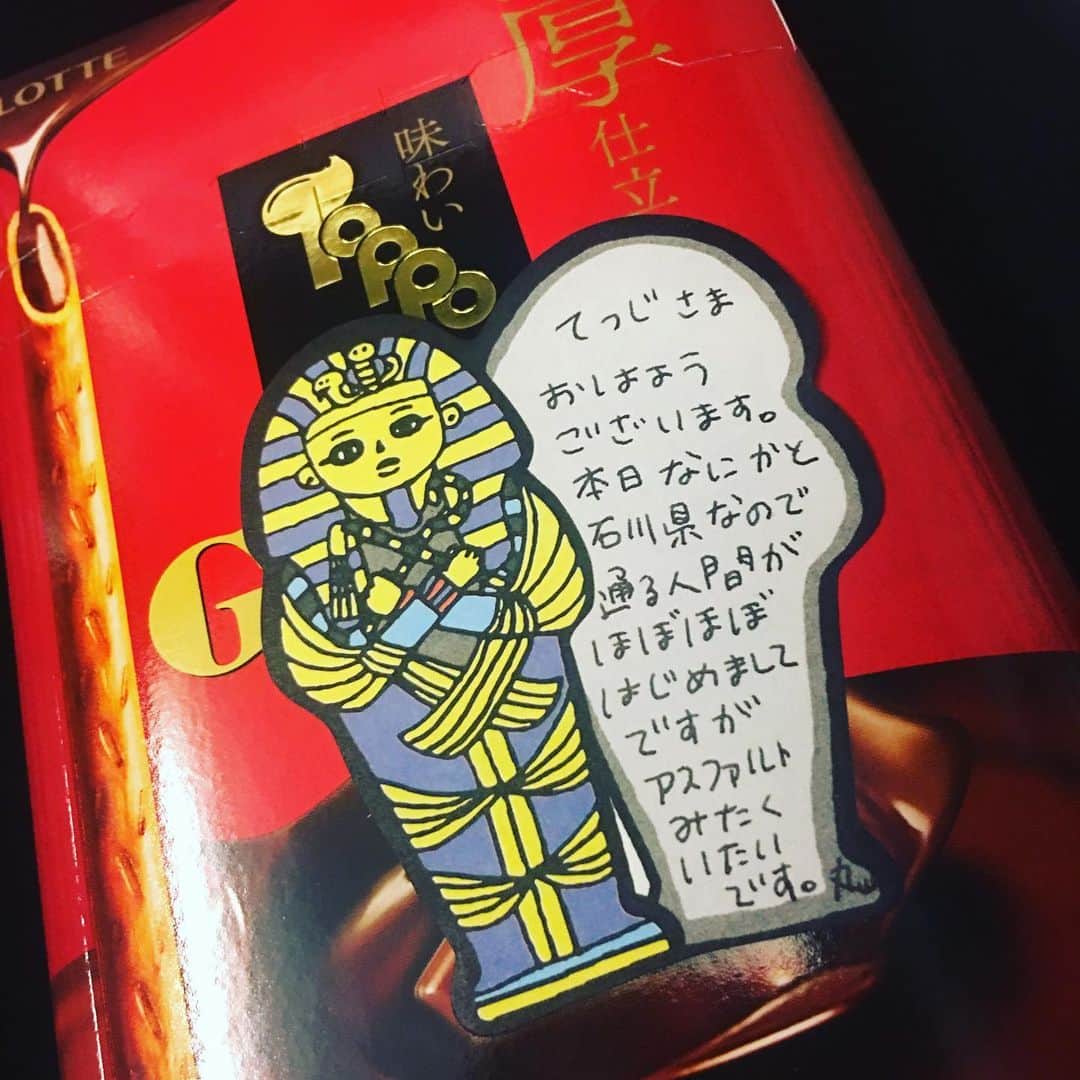 LOTTE
厚
仕立
味わい
Toppo
G
てつじさま
おはよう
ございます。
本日なにかと
石川県なので
通る人間が
ほぼほぼ
はじめまして
ですが
アスファルト
みたく
いたい
です。